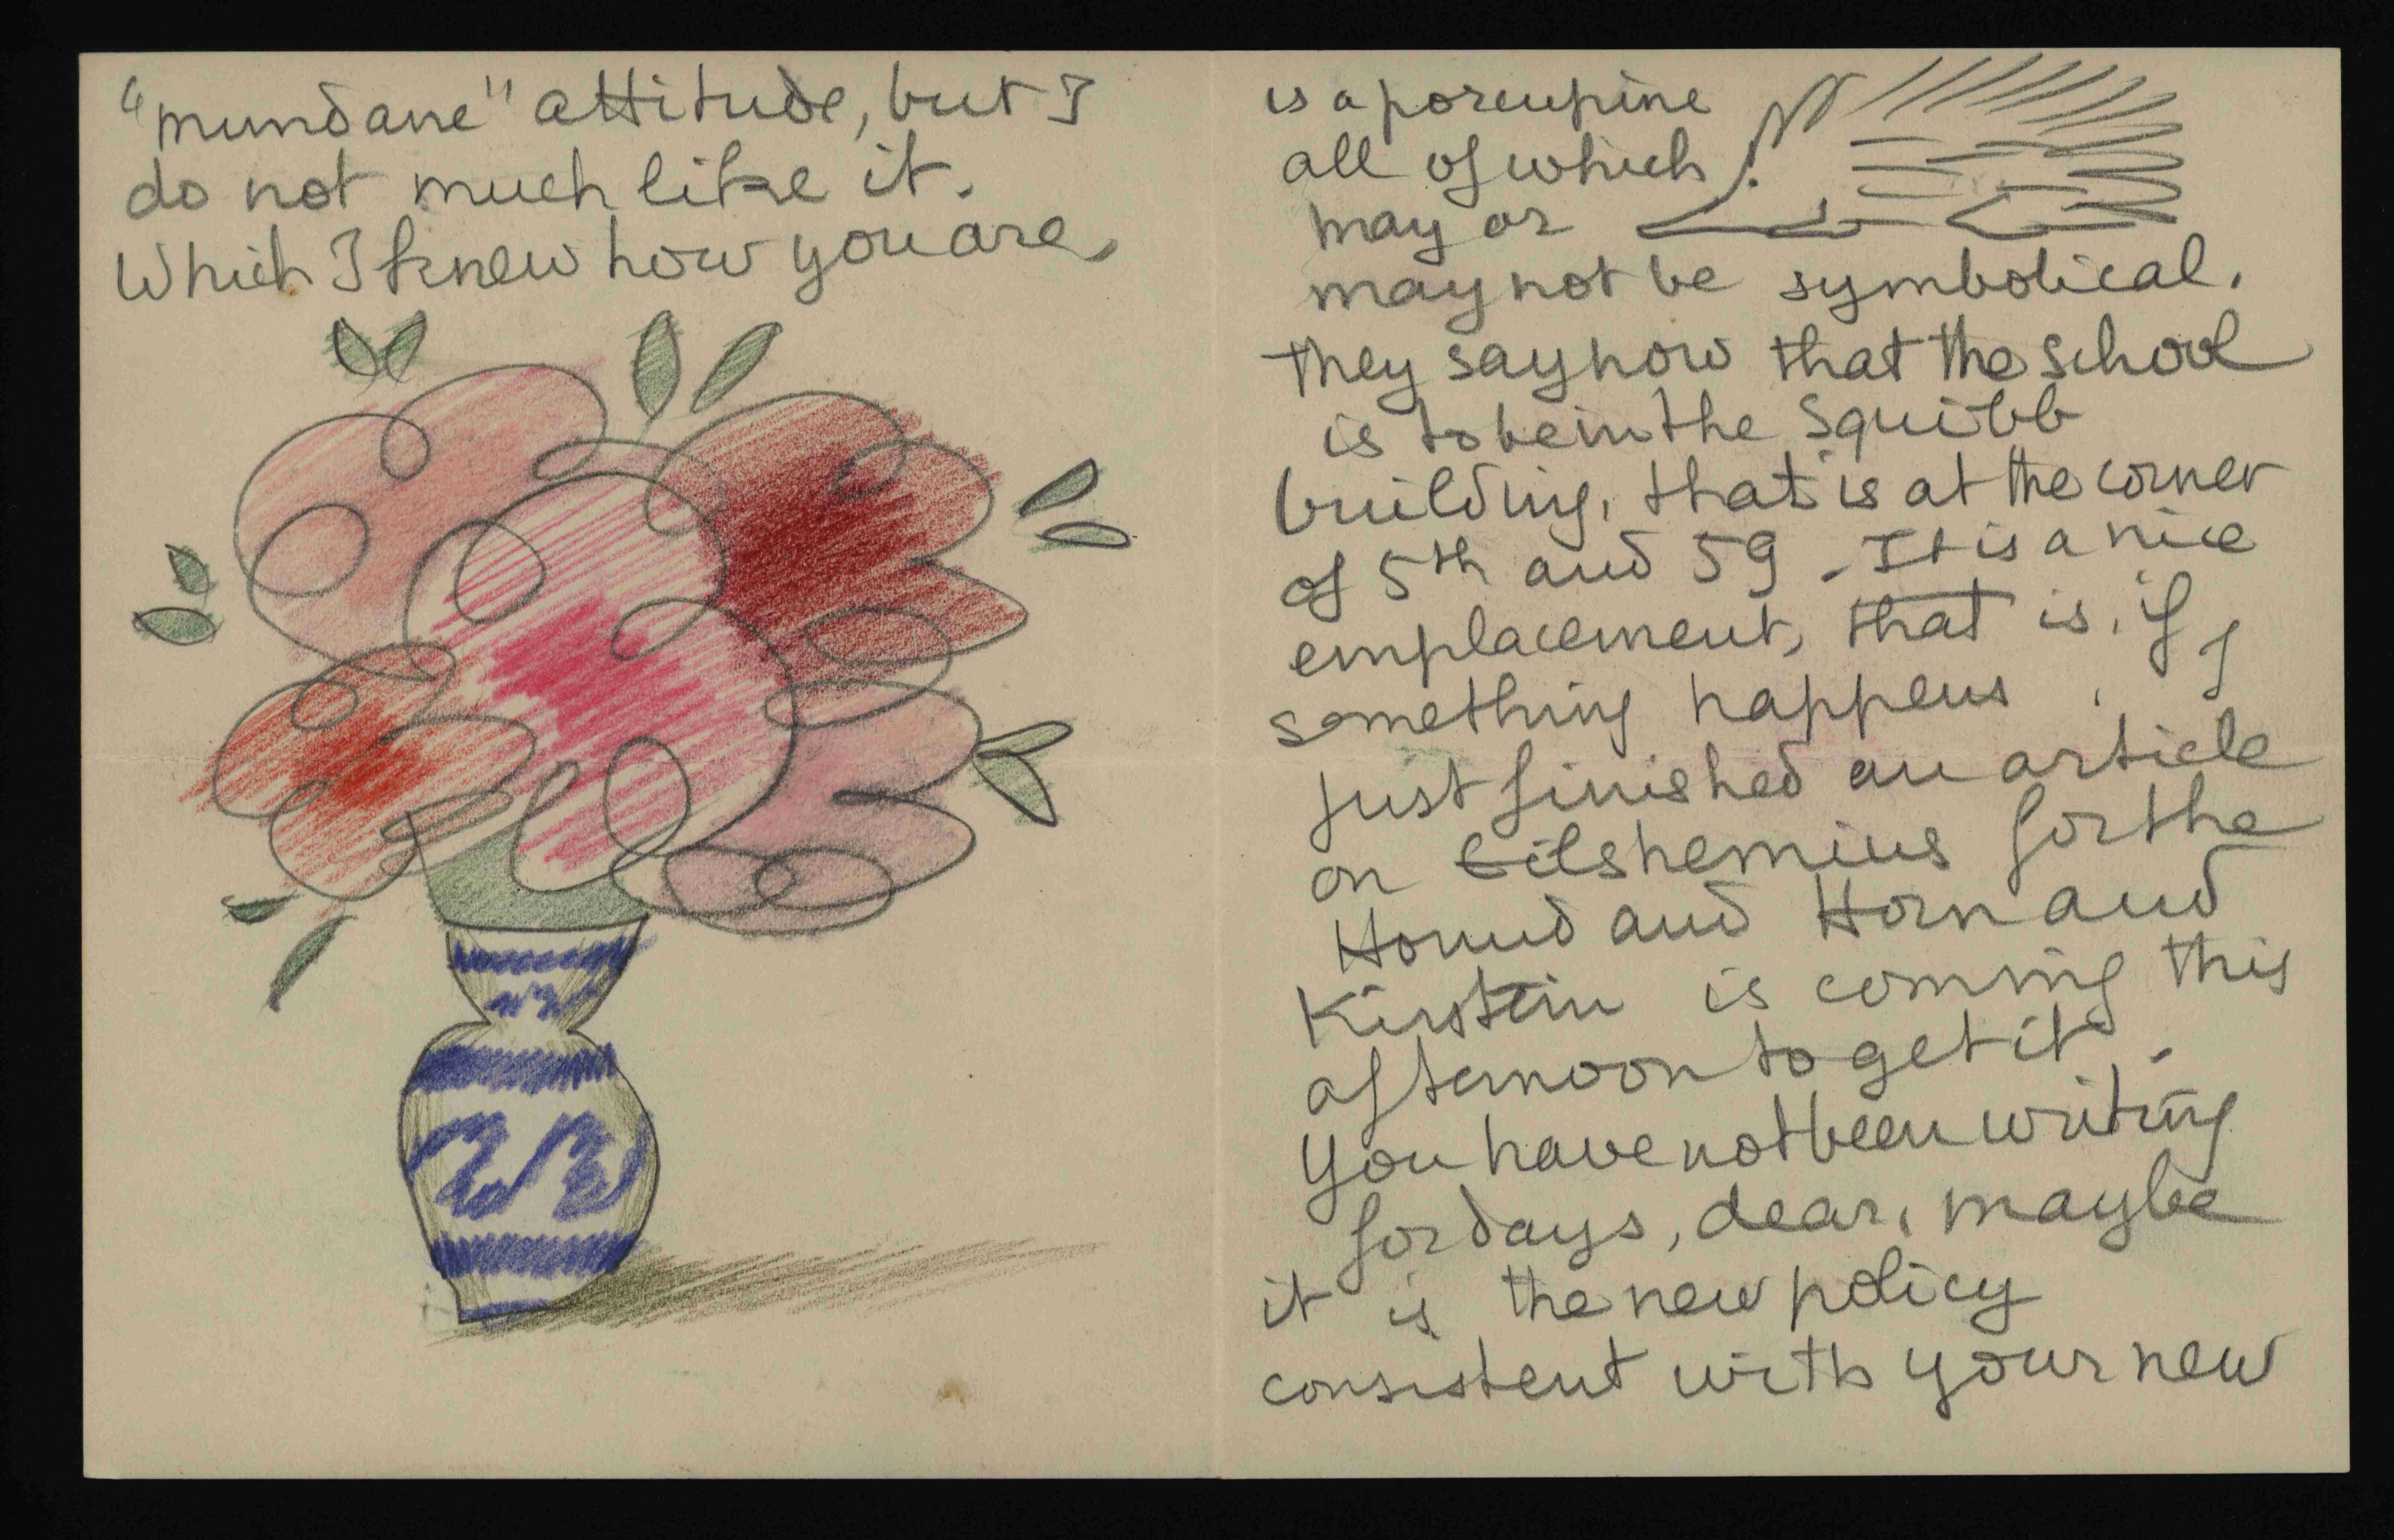 is a porcupine
all of which
may or
may not be symbolical.
They say now that the school
is to be in the Squibb
building, that is at the corner
of 5th and 59. It is a nice
emplacement, that is, if
something happens. I
just finished an article
on Eilshemius for the
Hound and Horn and
Kirstein is coming this
afternoon to get it.
You have not been writing
for days, dear, maybe
it is the new policy
consistent with your new
"mundane" attitude, but I
do not much like it.
Which I knew how you are.